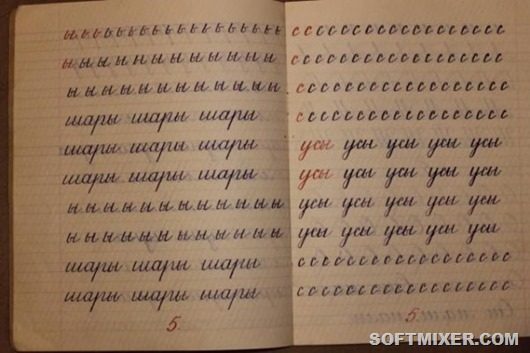 ы ы ы ы ы ы ы ы ы ы ы ы
ы ы ы ы ы ы ы ы ы ы ы ы
шары шары шары
шары шары шары
шары шары шары
ы ы ы ы ы ы ы ы ы ы ы ы
ы ы ы ы ы ы ы ы ы ы ы ы
шары шары шары
шары шары шары
5
с с с с с с с с с с с с с с с с с с
с с с с с с с с с с с с с с с с с
с с с с с с с с с с с с с с с с с
с с с с с с с с с с с с с с с с с
усы усы усы усы усы
усы усы усы усы усы
усы усы усы усы усы
усы усы усы усы усы
с с с с с с с с с с с с с с с с с
с с с с с с с с с с с с с с с с с
5
SOFTMIXER.COM